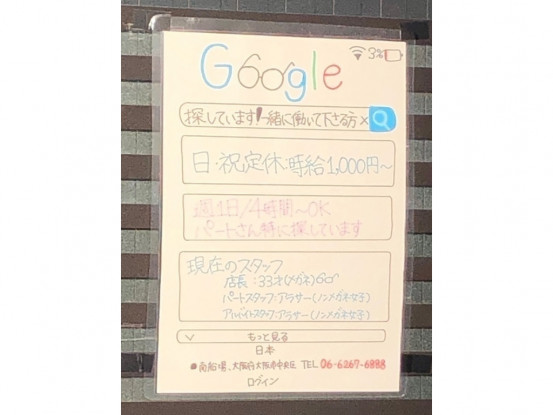 Google
3%
探しています!一緒に働いて下さる方 ×
日・祝定休 時給1,000円~
週1日/4時間~OK
パートさん特に探しています
現在のスタッフ
店長:33才(メガネ)
パートスタッフ:アラサー(ノンメガネ女子)
アルバイトスタッフ:アラサー(ノンメガネ女子)
もっと見る
日本
●南船場、大阪府大阪市中央区 TEL 06-6267-6888
ログイン